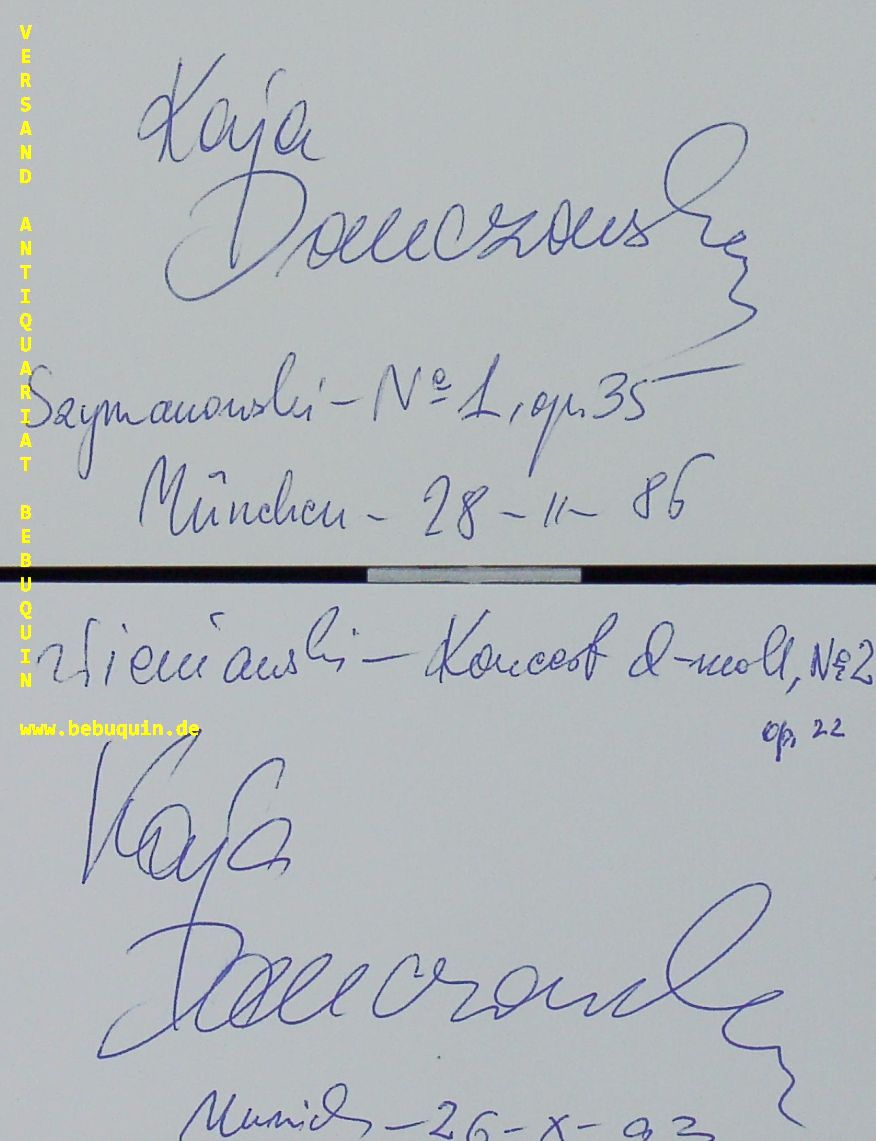 VERSAND ANTIQUARIAT BEBUQUIN
www.bebuquin.de
Kaja
Danczowska
Szymanowski - Nº 1, op. 35
München - 28 - 11 - 86
Wieniawski - Koncert d-moll, Nº 2
op. 22
Kaja
Danczowska
Munich - 26 - X -